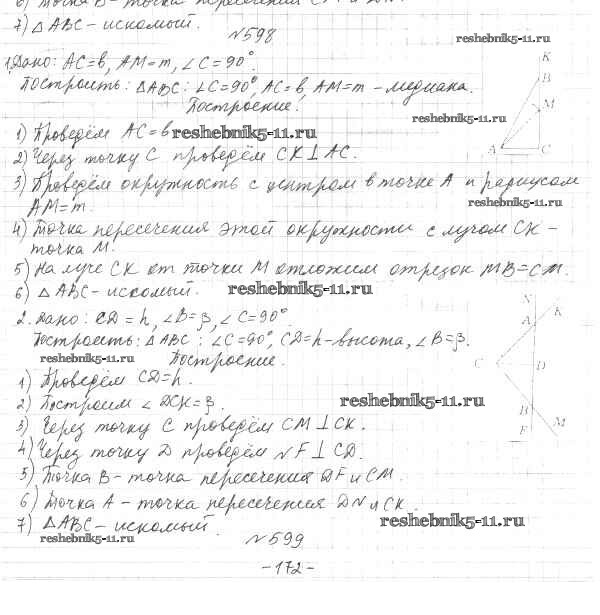 7) △ABC - искомый.
№598
reshebnik5-11.ru
1. Дано: AC=b, AM=m, ∠C=90°.
Построить: △ABC: ∠C=90°, AC=b, AM=m - медиана.
Построение:
reshebnik5-11.ru
K
B
M
A C
1) Проведём AC=b reshebnik5-11.ru
2) Через точку C проведём CK⊥AC.
3) Проведём окружность с центром в точке A и радиусом
reshebnik5-11.ru
AM=m.
4) Точка пересечения этой окружности с лучом CK -
точка M.
5) На луче CK от точки M отложим отрезок MB=CM.
6) △ABC - искомый. reshebnik5-11.ru
2. Дано: CD=h, ∠B=β, ∠C=90°.
Построить: △ABC: ∠C=90°, CD=h - высота, ∠B=β.
reshebnik5-11.ru Построение.
N
K
A
C D
B
F M
1) Проведём CD=h.
2) Построим ∠DCK=β. reshebnik5-11.ru
3) Через точку C проведём CM⊥CK.
4) Через точку D проведём NF⊥CD.
5) Точка B - точка пересечения DF и CM.
6) Точка A - точка пересечения DN и CK.
7) △ABC - искомый. reshebnik5-11.ru
reshebnik5-11.ru
№599
-172-